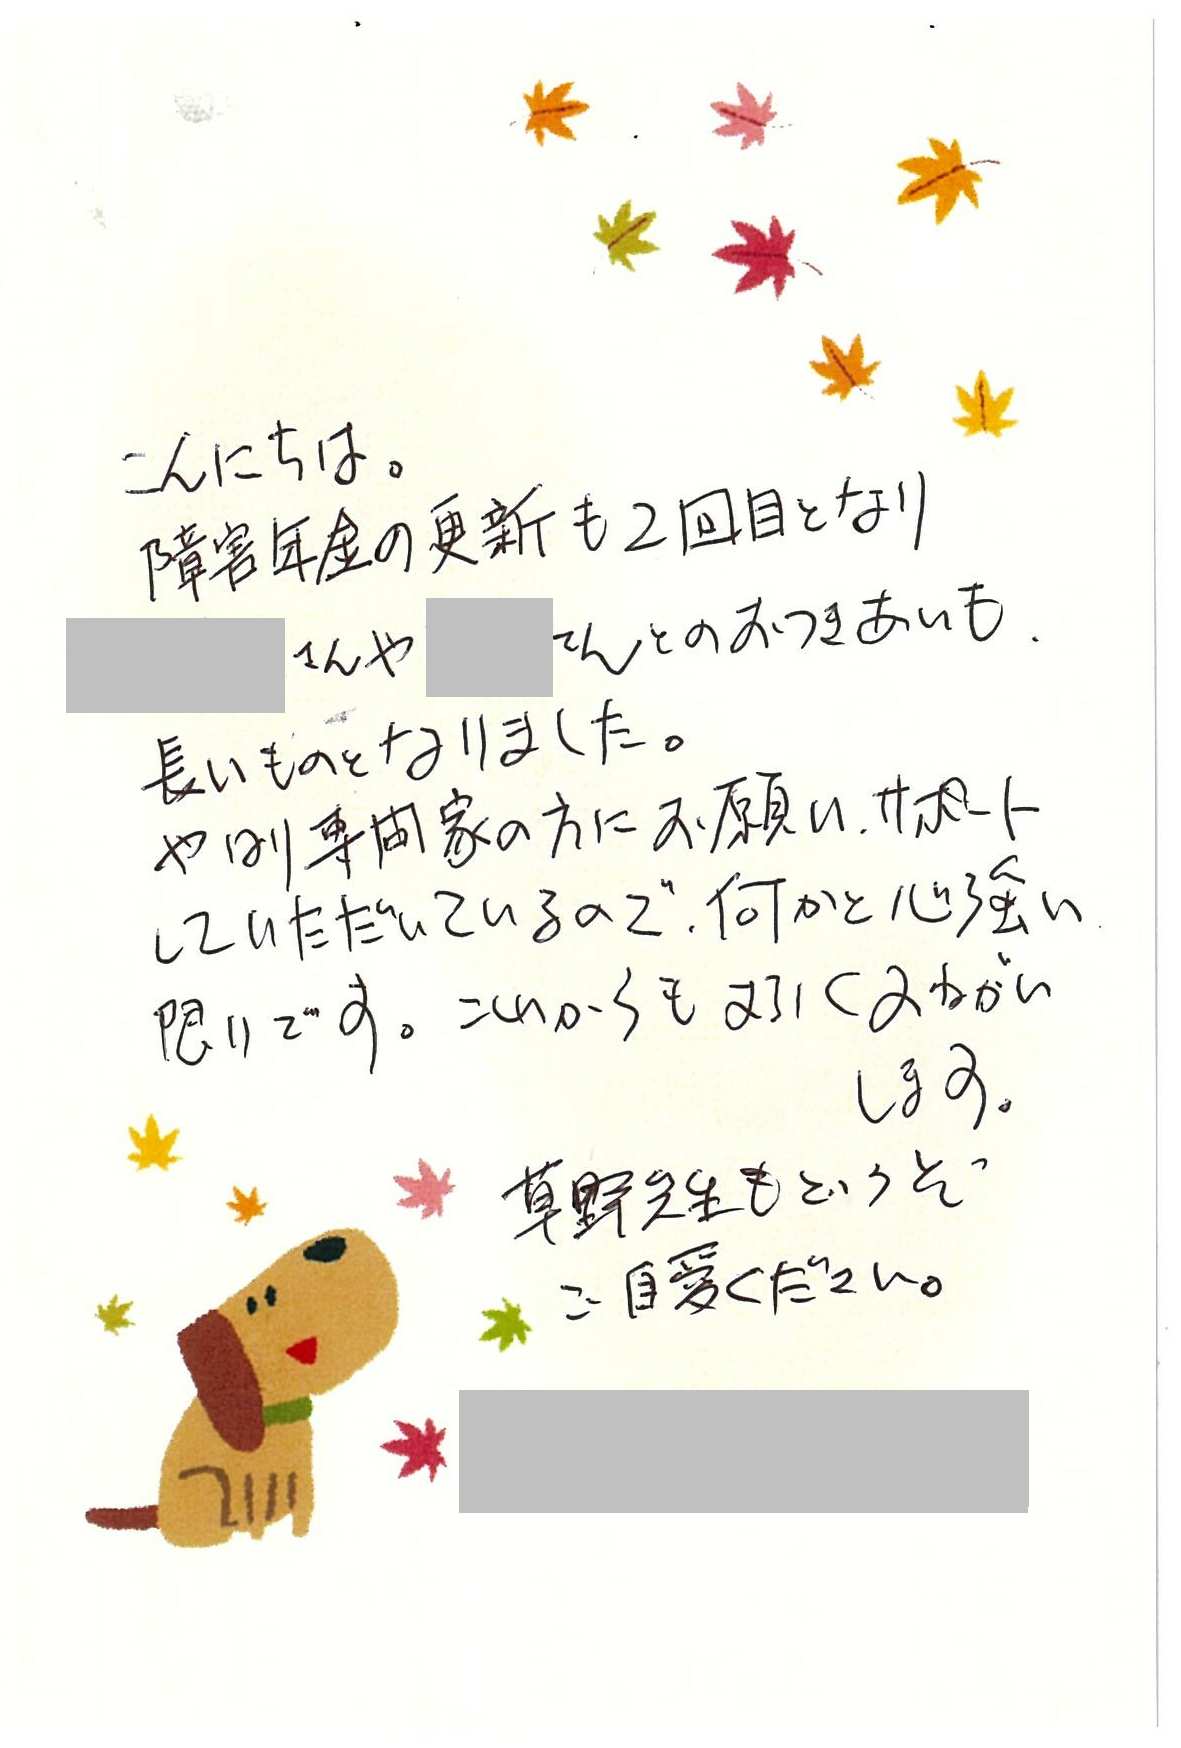 こんにちは。
障害年金の更新も2回目となり
さんや さんとのおつきあいも、
長いものとなりました。
やはり専門家の方にお願い、サポート
していただいているので、何かと心強い
限りです。これからも よろしくおねがい
します。
草野先生もどうぞ
ご自愛ください。